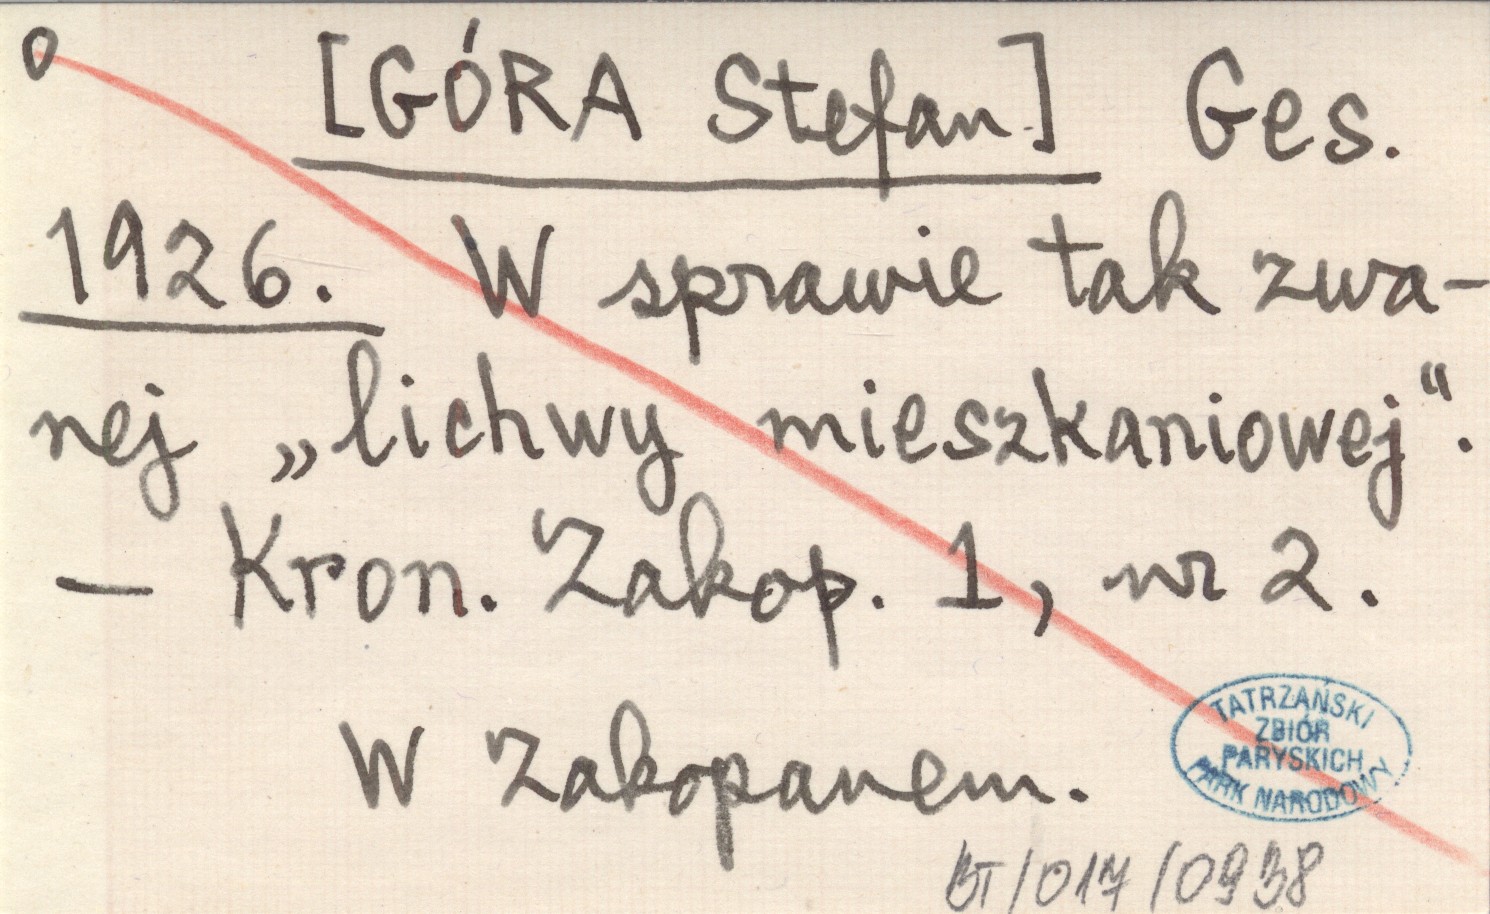 0 [GÓRA Stefan] Ges.
1926. W sprawie tak zwa-
nej „lichwy mieszkaniowej“.
— Kron. Zakop. 1, nr 2.
W Zakopanem.
TATRZAŃSKI
ZBIÓR
PARYSKICH
PARK NARODOWY
BT/017/0938